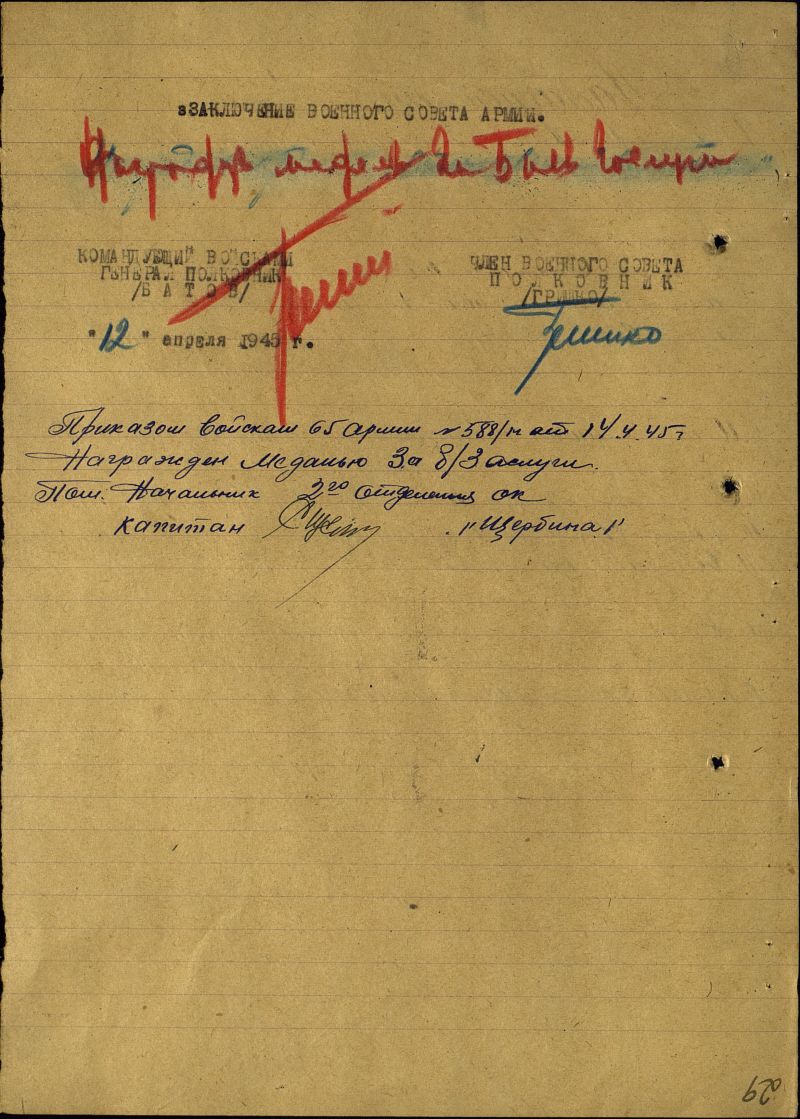 зЗАКЛЮЧЕНИЕ ВОЕННОГО СОВЕТА АРМИИ.
За Боев Заслуги
КОМАНДУЮЩИЙ ВОЙСКАМИ
ГЕНЕРАЛ ПОЛКОВНИК
/БАТОВ/
"12" апреля 1945 г.
ЧЛЕН ВОЕННОГО СОВЕТА
ПОЛКОВНИК
/ГРИШКО/
Гришко
Приказом войскам 65 армии №588/н от 14.4.45г
Награжден Медалью За б/Заслуги.
Пом. Начальник 2го отделения ок
капитан "Щербина"
29